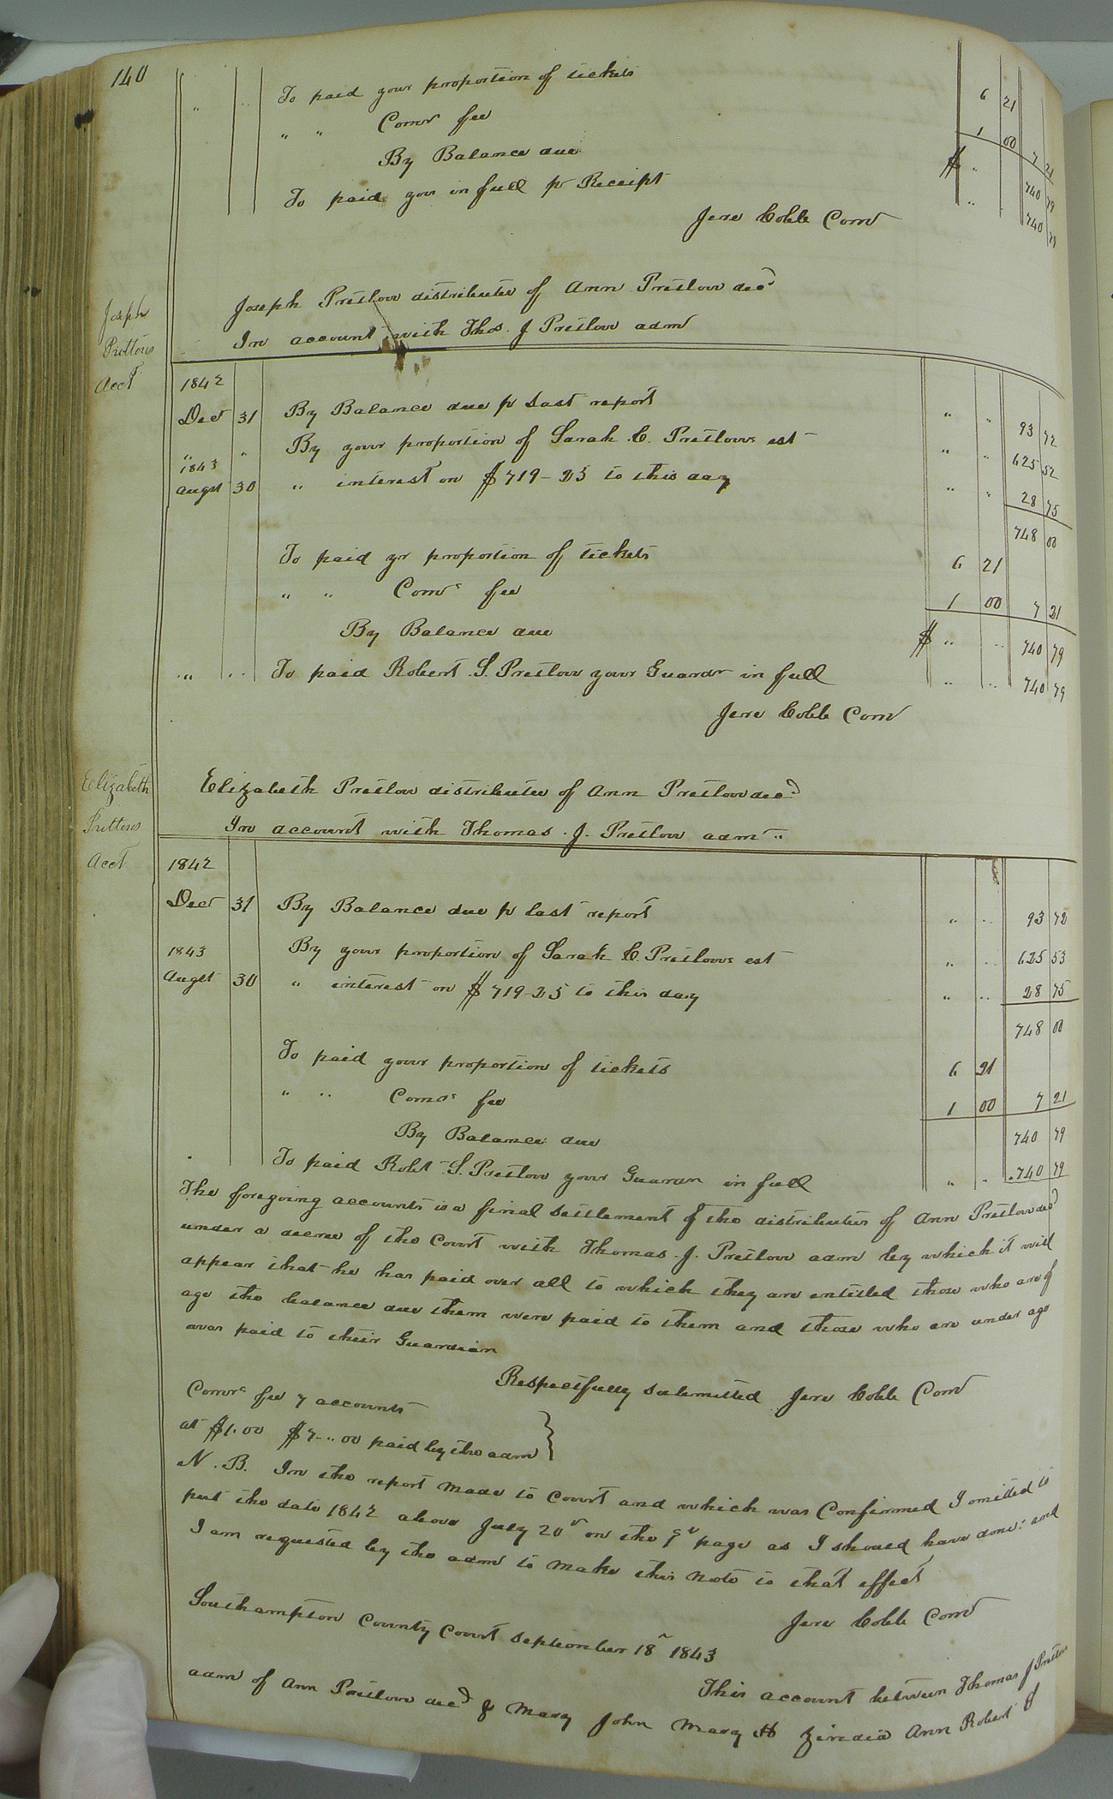 140
" " To paid your proportion of tickets 6 21
" " Comr fee 1 00 7 21
By Balance due $ " 740 79
To paid you in full pr Receipt " 740 79
Jere Cobb Comr
Joseph Pretlow distributee of Ann Pretlow decd
In account with Thos. J Pretlow admr
Joseph
Prettows
Acct
1842
Decr 31 By Balance due pr Last report " " 93 72
" " By your proportion of Sarah C. Pretlows est " " 625 52
1843
Augst 30 " interest on $719-25 to this day " " 28 75
748 00
To paid yr proportion of tickets 6 21
" " Comrs fee 1 00 7 21
By Balance due $ " " 740 79
" " To paid Robert S. Pretlow your Guardr in full " " 740 79
Jere Cobb Comr
Elizabeth Pretlow distributee of Ann Pretlow decd
In account with Thomas. J. Pretlow admr "
Elizabeth
Prettows
Acct
1842
Decr 31 By Balance due pr last report " " 93 72
1843 By your proportion of Sarah C Pretlows est " " 625 53
Augst 30 " interest on $719-25 to this day " " 28 75
748 00
To paid your proportion of tickets 6 21
" " Comrs fee 1 00 7 21
By Balance due 740 79
To paid Robt S. Pretlow your Guaran in full " " 740 79
The foregoing accounts is a final settlement of the distributees of Ann Pretlow decd
under a decree of the Court with Thomas. J. Pretlow admr by which it will
appear that he has paid over all to which they are entitled those who are of
age the balance due them were paid to them and those who are under age
was paid to their Guardian
Respectfully submitted Jere Cobb Comr
Comrs fee 7 accounts
at $1.00 $7.00 paid by the admr
N. B. In the report made to Court and which was Confirmed I omitted to
put the date 1842 above July 20th on the page as I should have done: and
I am requested by the admr to make this note to that effect
Jere Cobb Comr
Southampton County Court September 18th 1843
This account between Thomas J Pretlow
admr of Ann Pretlow decd & Mary John Mary H Ann Robert S